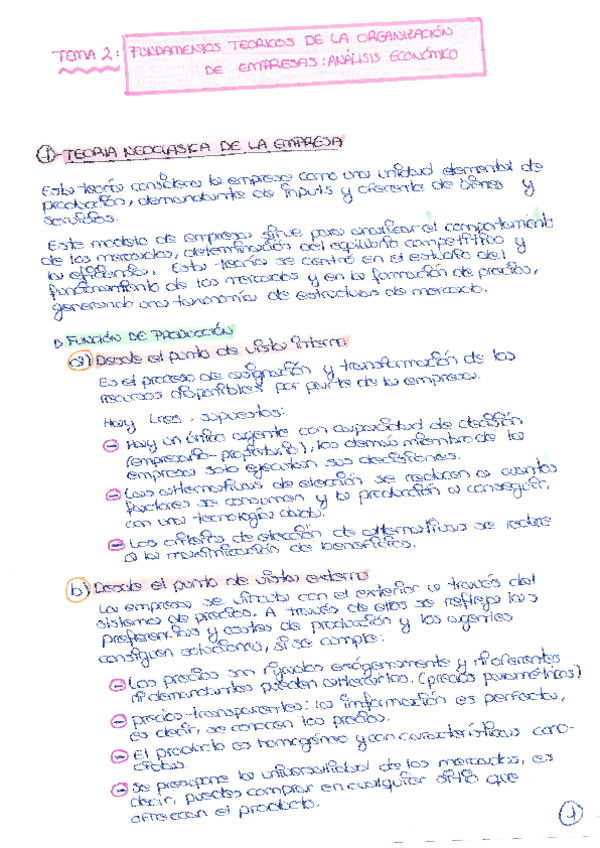 TEMA 2: FUNDAMENTOS TEORICOS DE LA ORGANIZACIÓN
DE EMPRESAS: ANÁLISIS ECONÓMICO
1- TEORIA NEOCLASICA DE LA EMPRESA
Esta teoría considera la empresa como una unidad elemental de
producción, demandante de inputs y oferente de bienes y
servicios.
Este modelo de empresa sirve para analizar el comportamiento
de los mercados, determinación del equilibrio competitivo y
la eficiencia. Esta teoría se centra en el estudio del
funcionamiento de los mercados y en la formación de precios,
generando una taxonomía de estructuras de mercado.
FUNCIÓN DE PRODUCCIÓN
a) Desde el punto de vista interno
Es el proceso de asignación y transformación de los
recursos disponibles por parte de la empresa.
Hay tres supuestos:
- Hay un único agente con capacidad de decisión
(empresario-propietario), los demás miembro de la
empresa solo ejecutan sus decisiones.
- Las alternativas de elección se reducen a cuantos
factores se consumen y la producción a conseguir,
con una tecnología dada.
- Los criterios de elección de alternativas se reduce
a la maximización de beneficios.
b) Desde el punto de vista externo
La empresa se vincula con el exterior a través del
sistema de precios. A través de ellos se refleja las
preferencias y costes de producción y los agentes
consiguen soluciones, si se cumple:
- Los precios son fijados exógenamente y ni oferentes
ni demandantes pueden alterarlos. (precios paramétricos)
- precios transparentes: la información es perfecta,
es decir, se conocen los precios.
- El producto es homogéneo y con características cono-
cidas.
- Se presupone la universalidad de los mercados, es
decir, puedes comprar en cualquier sitio que
ofrezcan el producto.
1